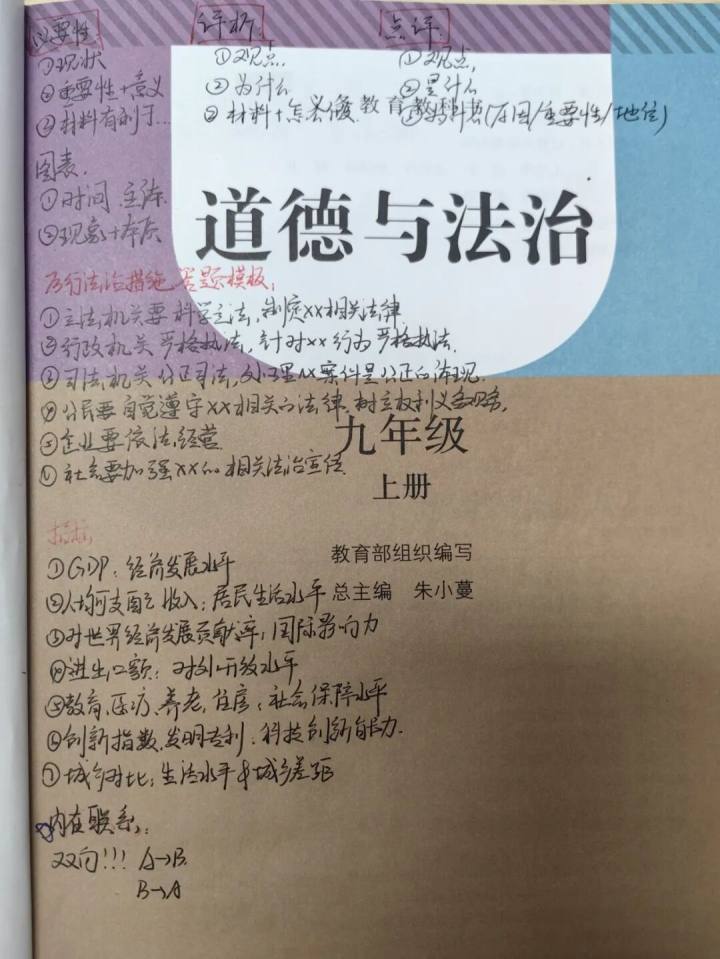 必要性: 评析: 点评:
①现状 ①观点. ①观点,
②重要性+意义 ②为什么 ②是什么
③材料有利于… ③材料+怎么做 教育教科书 (原因/重要性/地位)
图表.
①时间 主体
②现象+本质
道德与法治
厉行法治措施 答题模板:
①立法机关要科学立法, 制定XX相关法律
②行政机关严格执法, 针对XX行为严格执法.
③司法机关公正司法, 处理XX案件是公正的体现.
④公民要自觉遵守XX相关的法律, 树立权利义务观念,
⑤企业要依法经营.
⑥社会要加强XX的相关法治宣传.
九年级
上册
指标:
①GDP: 经济发展水平
教育部组织编写
②人均可支配收入: 居民生活水平
总主编 朱小蔓
③对世界经济发展贡献率: 国际影响力
④进出口额: 对外开放水平
⑤教育、医疗、养老、住房: 社会保障水平
⑥创新指数、发明专利: 科技创新能力.
⑦城乡对比: 生活水平&城乡差距
内在联系:
双向!!! A→B.
B→A